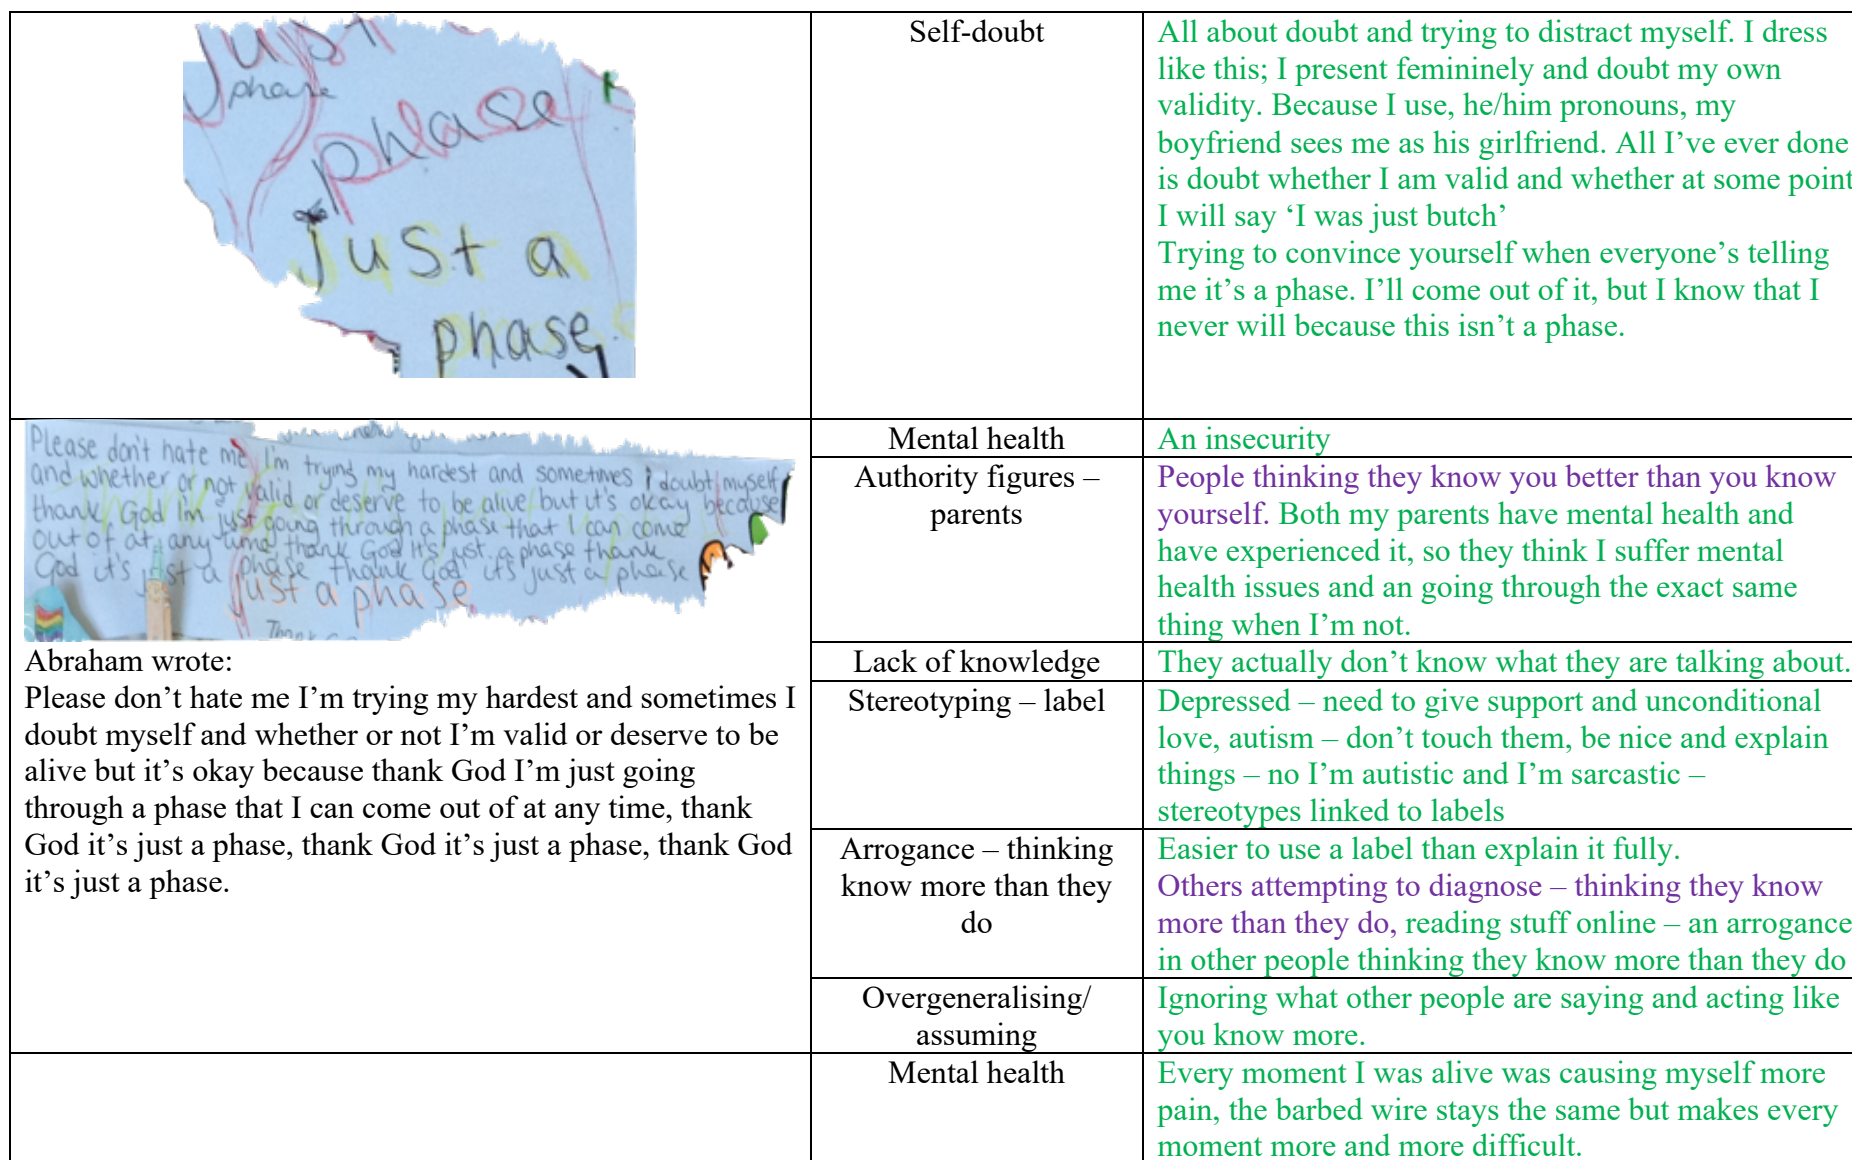 just
phase
phase
just a
phase
Self-doubt
All about doubt and trying to distract myself. I dress
like this; I present femininely and doubt my own
validity. Because I use, he/him pronouns, my
boyfriend sees me as his girlfriend. All I’ve ever done
is doubt whether I am valid and whether at some point
I will say ‘I was just butch’
Trying to convince yourself when everyone’s telling
me it’s a phase. I’ll come out of it, but I know that I
never will because this isn’t a phase.
Please don't hate me I'm trying my hardest and sometimes i doubt myself
and whether or not valid or deserve to be alive but it's okay because
thank God I'm just going through a phase that I can come
out of at any time thank God it's just a phase thank
God it's just a phase thank God it's just a phase
just a phase
Thank
Abraham wrote:
Please don’t hate me I’m trying my hardest and sometimes I
doubt myself and whether or not I’m valid or deserve to be
alive but it’s okay because thank God I’m just going
through a phase that I can come out of at any time, thank
God it’s just a phase, thank God it’s just a phase, thank God
it’s just a phase.
Mental health
An insecurity
Authority figures –
parents
People thinking they know you better than you know
yourself. Both my parents have mental health and
have experienced it, so they think I suffer mental
health issues and an going through the exact same
thing when I’m not.
Lack of knowledge
They actually don’t know what they are talking about.
Stereotyping – label
Depressed – need to give support and unconditional
love, autism – don’t touch them, be nice and explain
things – no I’m autistic and I’m sarcastic –
stereotypes linked to labels
Arrogance – thinking
know more than they
do
Easier to use a label than explain it fully.
Others attempting to diagnose – thinking they know
more than they do, reading stuff online – an arrogance
in other people thinking they know more than they do
Overgeneralising/
assuming
Ignoring what other people are saying and acting like
you know more.
Mental health
Every moment I was alive was causing myself more
pain, the barbed wire stays the same but makes every
moment more and more difficult.